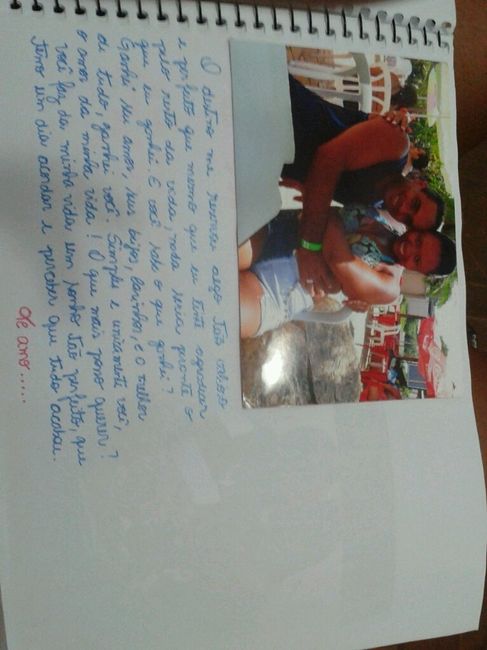 O destino me reservou algo tão valioso
e perfeito que mesmo que eu tente agradecer
pelo resto da vida, nada seria perante o
que eu ganhei. E você sabe o que ganhei?
Ganhei seu amor, seus beijos, carinhos, o melhor
de tudo, ganhei você. Simples e unicamente você,
o amor da minha vida! O que mais posso querer?
Você faz da minha vida um sonho tão perfeito, que
temo um dia acordar e perceber que tudo acabou.
Te amo.....